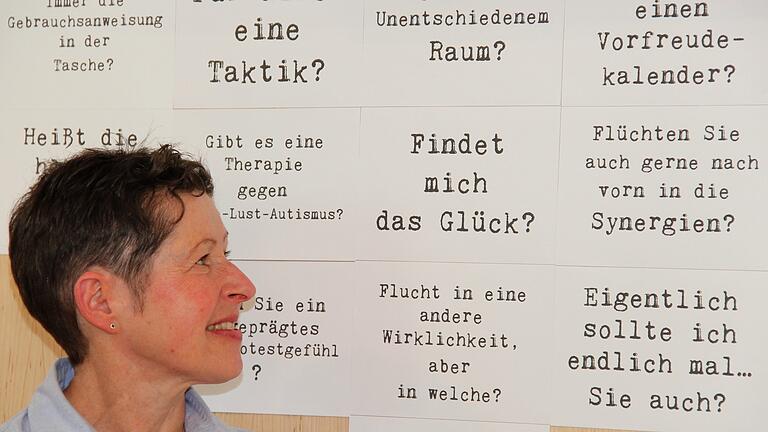 Immer die
Gebrauchsanweisung
in der
Tasche?
eine
Taktik?
Unentschiedenem
Raum?
einen
Vorfreude-
kalender?
Heißt die
Gibt es eine
Therapie
gegen
-Lust-Autismus?
Findet
mich
das Glück?
Flüchten Sie
auch gerne nach
vorn in die
Synergien?
Sie ein
eprägtes
otestgefühl
?
Flucht in eine
andere
Wirklichkeit,
aber
in welche?
Eigentlich
sollte ich
endlich mal...
Sie auch?